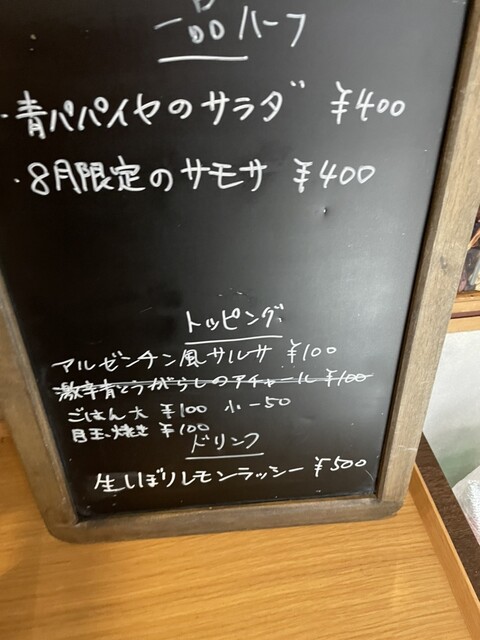 一品ハーフ
・青パパイヤのサラダ ¥400
・8月限定のサモサ ¥400
トッピング
アルゼンチン風サルサ ¥100
激辛青とうがらしのアイチャール ¥100
ごはん大 ¥100 小-50
目玉焼き ¥100
ドリンク
生しぼりレモンラッシー ¥500